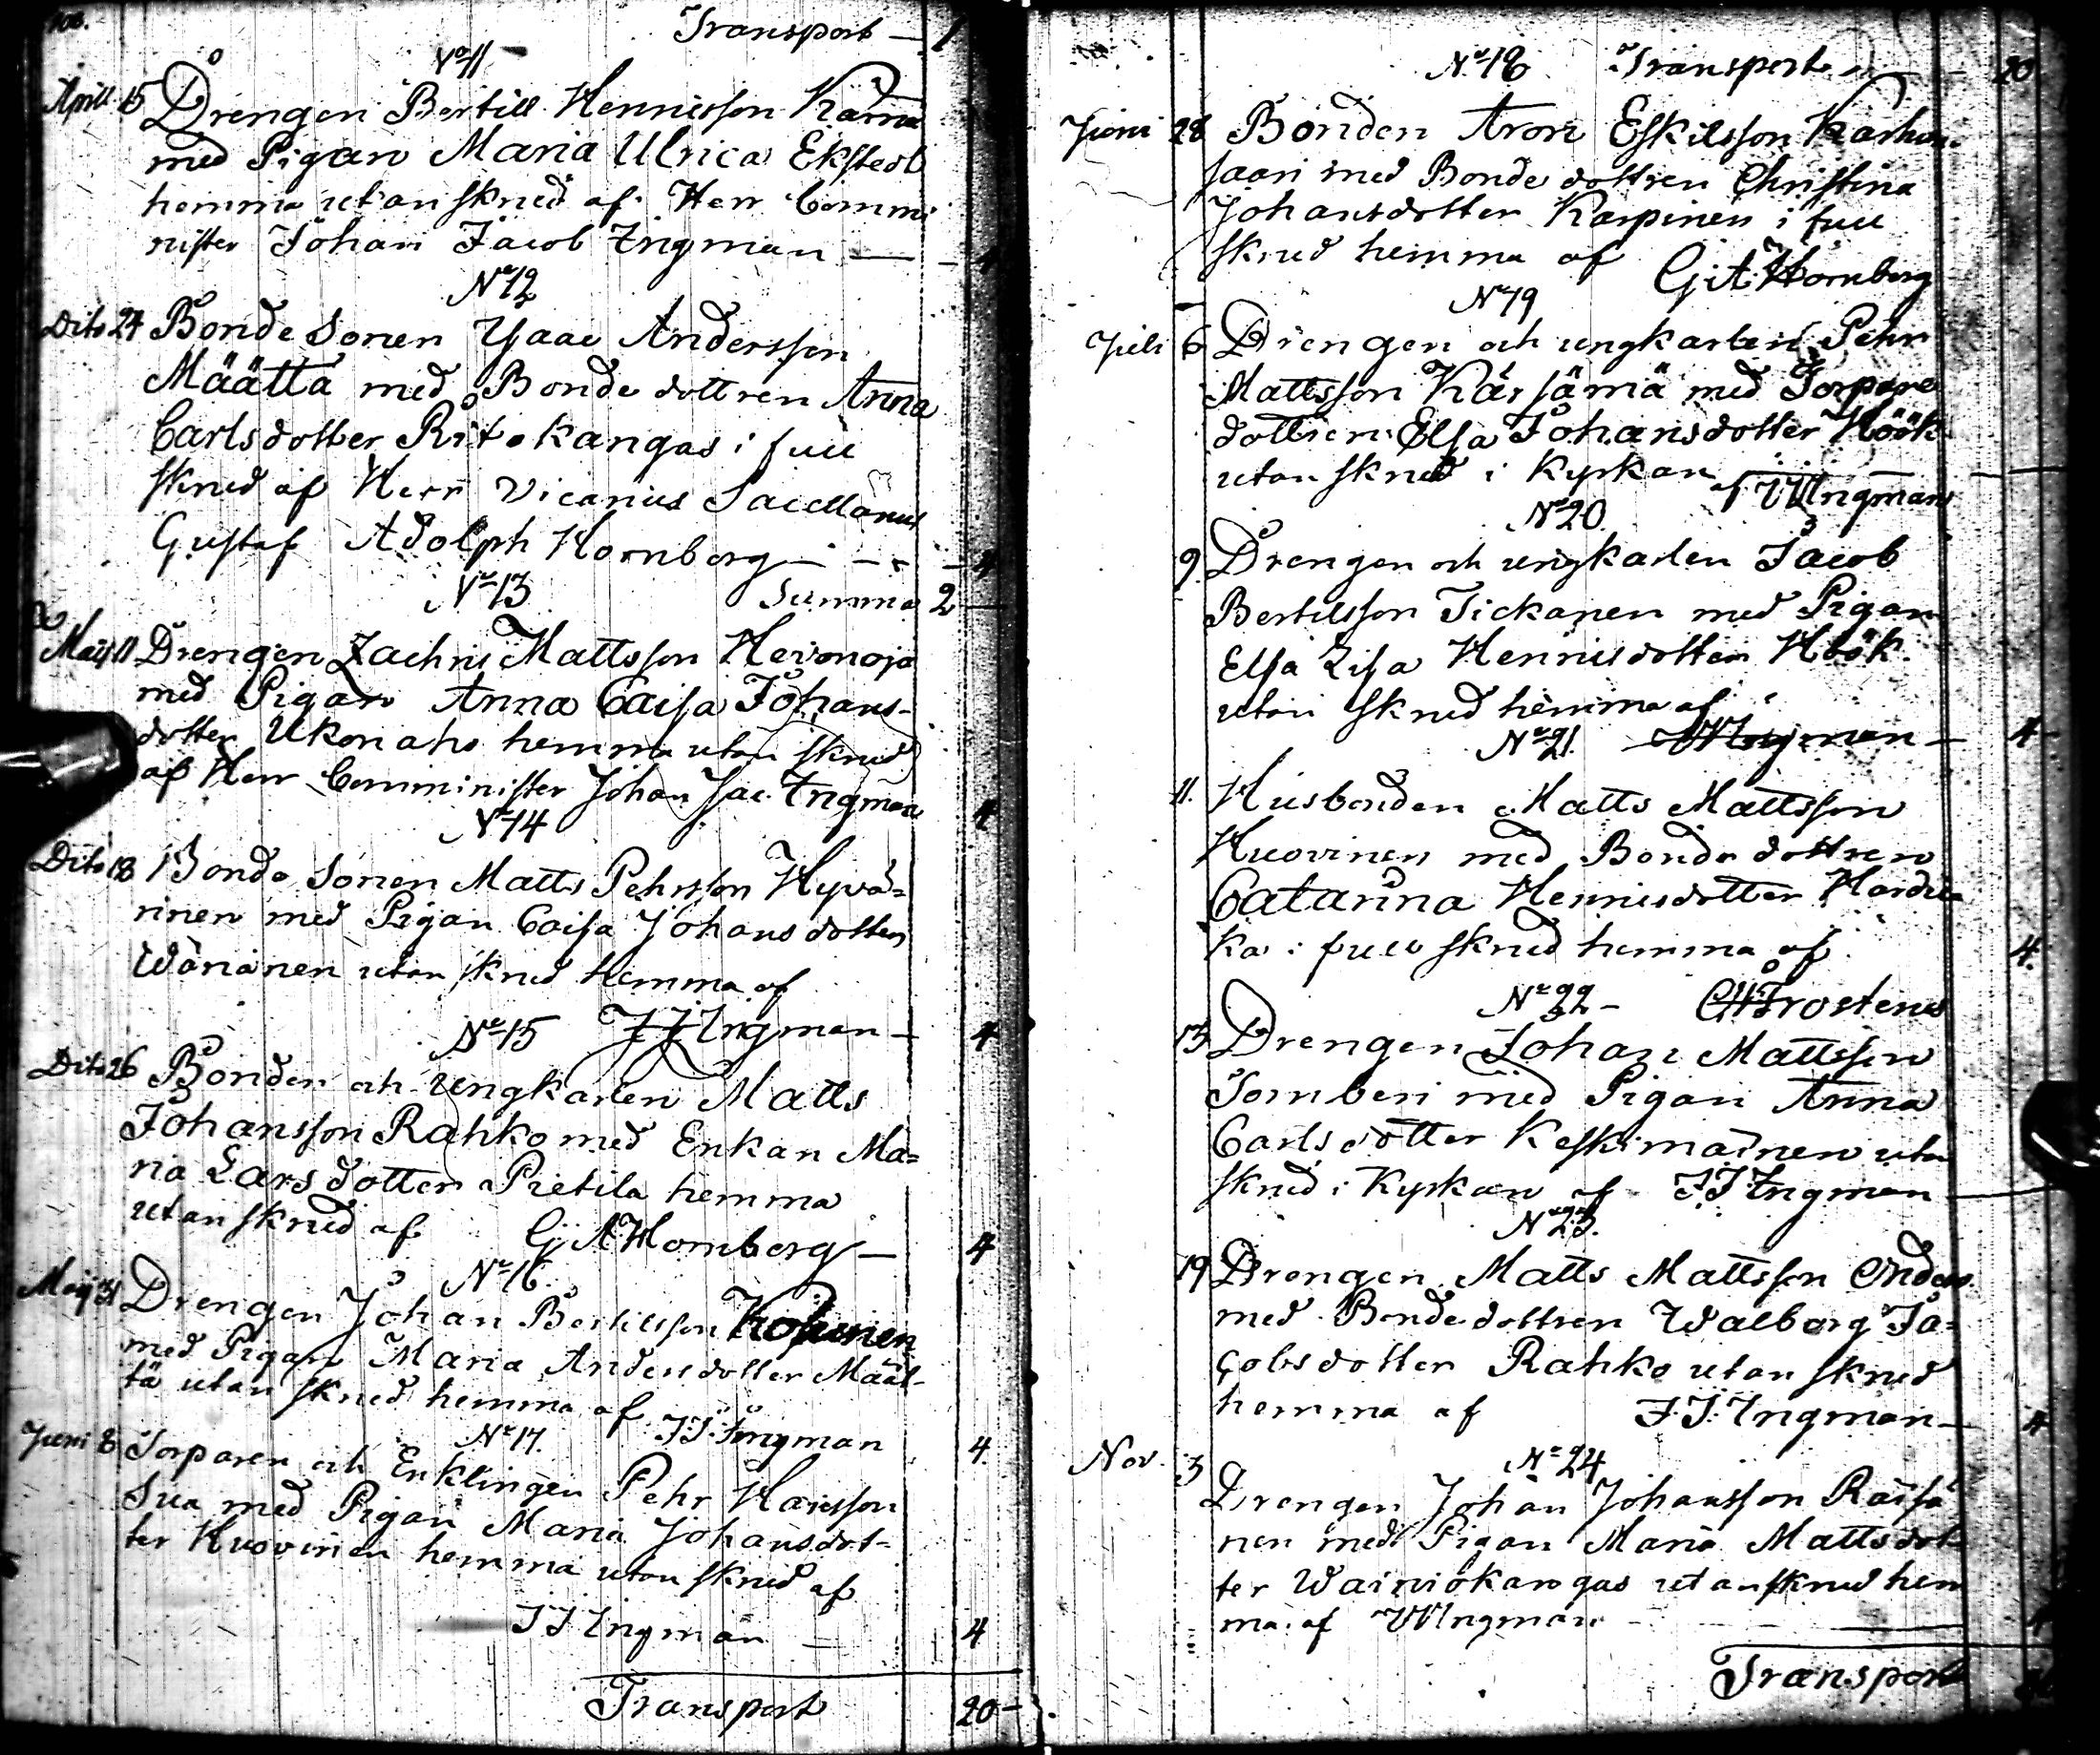 Transport — 1
No 11
April 15 Drengen Bertill Hennisson Kärnä
med Pigan Maria Ulrica Ekstedt
hemma utan skrud af Herr Commi
nister Johan Jacob Ingman — 4
No 12
Dito 24 Bonde Sonen Ysaac Andersson
Määttä med Bonde dottren Anna
Carlsdotter Ritokangas i full
skrud af Herr Vicarius Sacellanus
Gustaf Adolph Hornborg — 4
No 13 Summa 2 —
Maij 11 Drengen Zachris Mattsson Hevonoja
med Pigan Anna Caisa Johans-
dotter Ukonaho hemma utan skrud
af Herr Comminister Johan Jac. Ingman 4
No 14
Dito 18 Bonde Sonen Matts Pehrsson Hyvä=
rinen med Pigan Caisa Johans dotter
Wänänen utan skrud hemma af
No 15 J J Ingman — 4
Dito 26 Bonden och Ungkarlen Matts
Johansson Rahko med Enkan Ma=
ria Lars dotter Pietilä hemma
utan skrud af G A Hornborg — 4
No 16.
Maij 31 Drengen Johan Bertilsson
med Pigan Maria Andersdotter Määt-
tä utan skrud hemma af
No 17. J J. Ingman 4.
Juni 8 Torparen och Enklingen Pehr Hansson
Sua med Pigan Maria Johansdot=
ter Huovinen hemma utan skrud af
J J Ingman — 4
Transport 20 —
No 18 Transport — 20
Juni 28 Bonden Aron Eskilsson Karhun-
saari med Bonde dottren Christina
Johansdotter Karpinen i full
skrud hemma af G A Hornborg
No 19
Juli 6 Drengen och ungkarlen Pehr
Mattsson Kärsämä med Torpare
dottren Elsa Johansdotter Höök
utan skrud i Kyrkan af J J Ingman
No 20.
9. Drengen och ungkarlen Jacob
Bertilsson Tickanen med Pigan
Elsa Lisa Hennisdotter Höök
utan skrud hemma af
No 21. J J Ingman — 4
11. Husbonden Matts Mattsson
Huovinen med Bonde dottren
Catarina Hennisdotter Hardic
ka i full skrud hemma af 4.
No 22 - Frosterus
13 Drengen Johan Mattsson
Tomberi med Pigan Anna
Carlsdotter Keskimäinen utan
skrud i Kyrkan af J J Ingman —
No 23.
19 Drengen Matts Mattsson
med Bondedottren Walborg Ja=
cobsdotter Rahko utan skrud
hemma af J. J. Ingman — 4
No 24
Nov. 3 Drengen Johan Johansson Raisä
nen med Pigan Maria Mattsdot
ter Wäiniökangas utan skrud hem
ma af J J Ingman
Transport